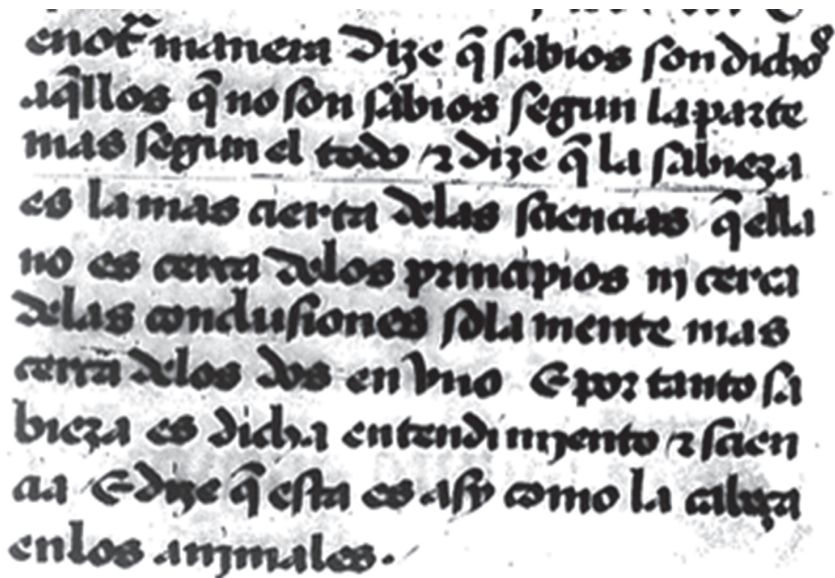 en ot̃ manera Dize q̃ sabios son dichos
aq̃llos q̃ no son sabios segun la parte
mas segun el todo ⁊ dize q̃ la sabieza
es la mas cierta delas sciencias q̃ ella
no es cerca delos principios nj cerca
delas conclusiones sola mente mas
cerca delos dos en vno E por tanto sa
bieza es dicha entendimjento ⁊ scien
cia E dize q̃ esta es asy como la cabeça
enlos anjmales.